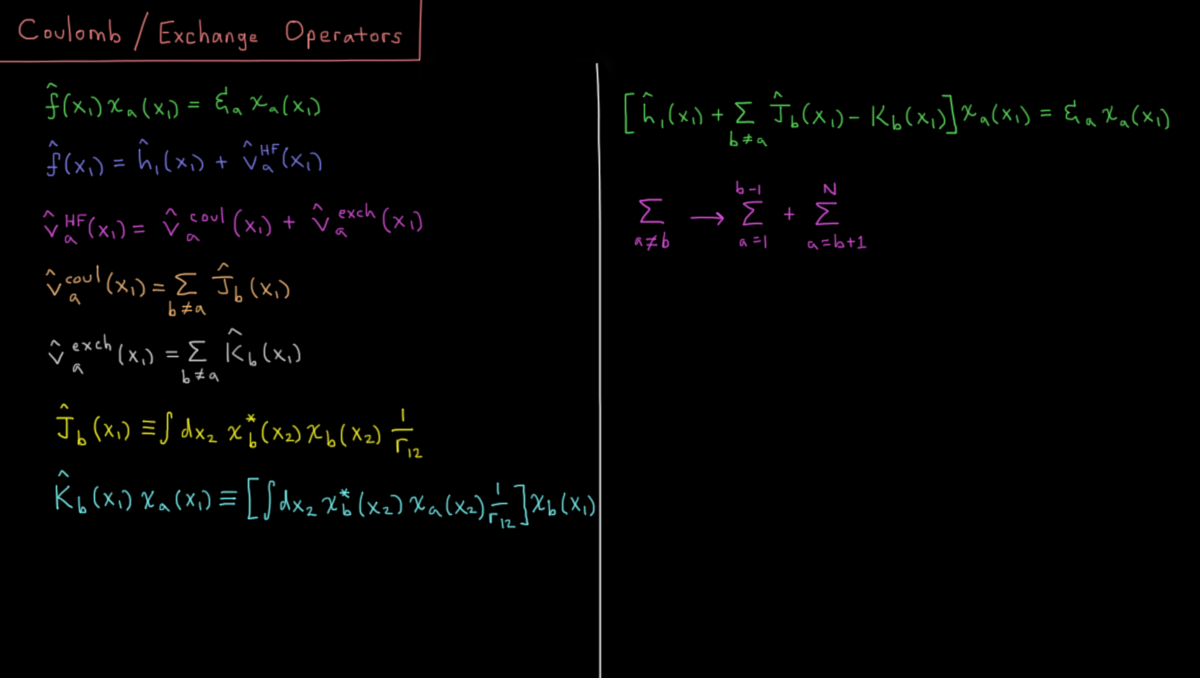 Coulomb / Exchange Operators
f̂(x₁) χₐ(x₁) = Ɛₐ χₐ(x₁)
f̂(x₁) = ĥ₁(x₁) + v̂ₐᴴᶠ(x₁)
v̂ₐᴴᶠ(x₁) = v̂ₐ^coul(x₁) + v̂ₐ^exch(x₁)
v̂ₐ^coul(x₁) = Σ_{b≠a} Ĵ_b(x₁)
v̂ₐ^exch(x₁) = Σ_{b≠a} K̂_b(x₁)
Ĵ_b(x₁) ≡ ∫ dx₂ χ_b^*(x₂) χ_b(x₂) 1/r₁₂
K̂_b(x₁) χₐ(x₁) ≡ [∫ dx₂ χ_b^*(x₂) χₐ(x₂) 1/r₁₂] χ_b(x₁)
[ĥ₁(x₁) + Σ_{b≠a} Ĵ_b(x₁) - K_b(x₁)] χₐ(x₁) = Ɛₐ χₐ(x₁)
Σ_{a≠b} → Σ_{a=1}^{b-1} + Σ_{a=b+1}^{N}